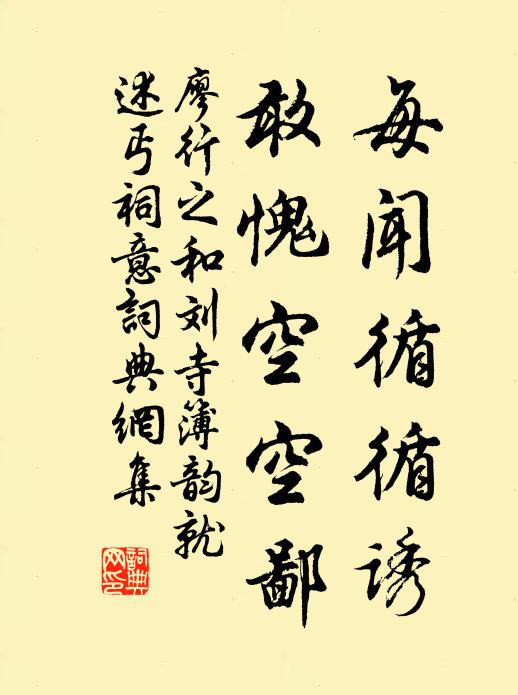 每闻循循诱
敢愧空空鄙
廖行之和刘寺簿韵就
述丐祠意詞典網集
詞典网印